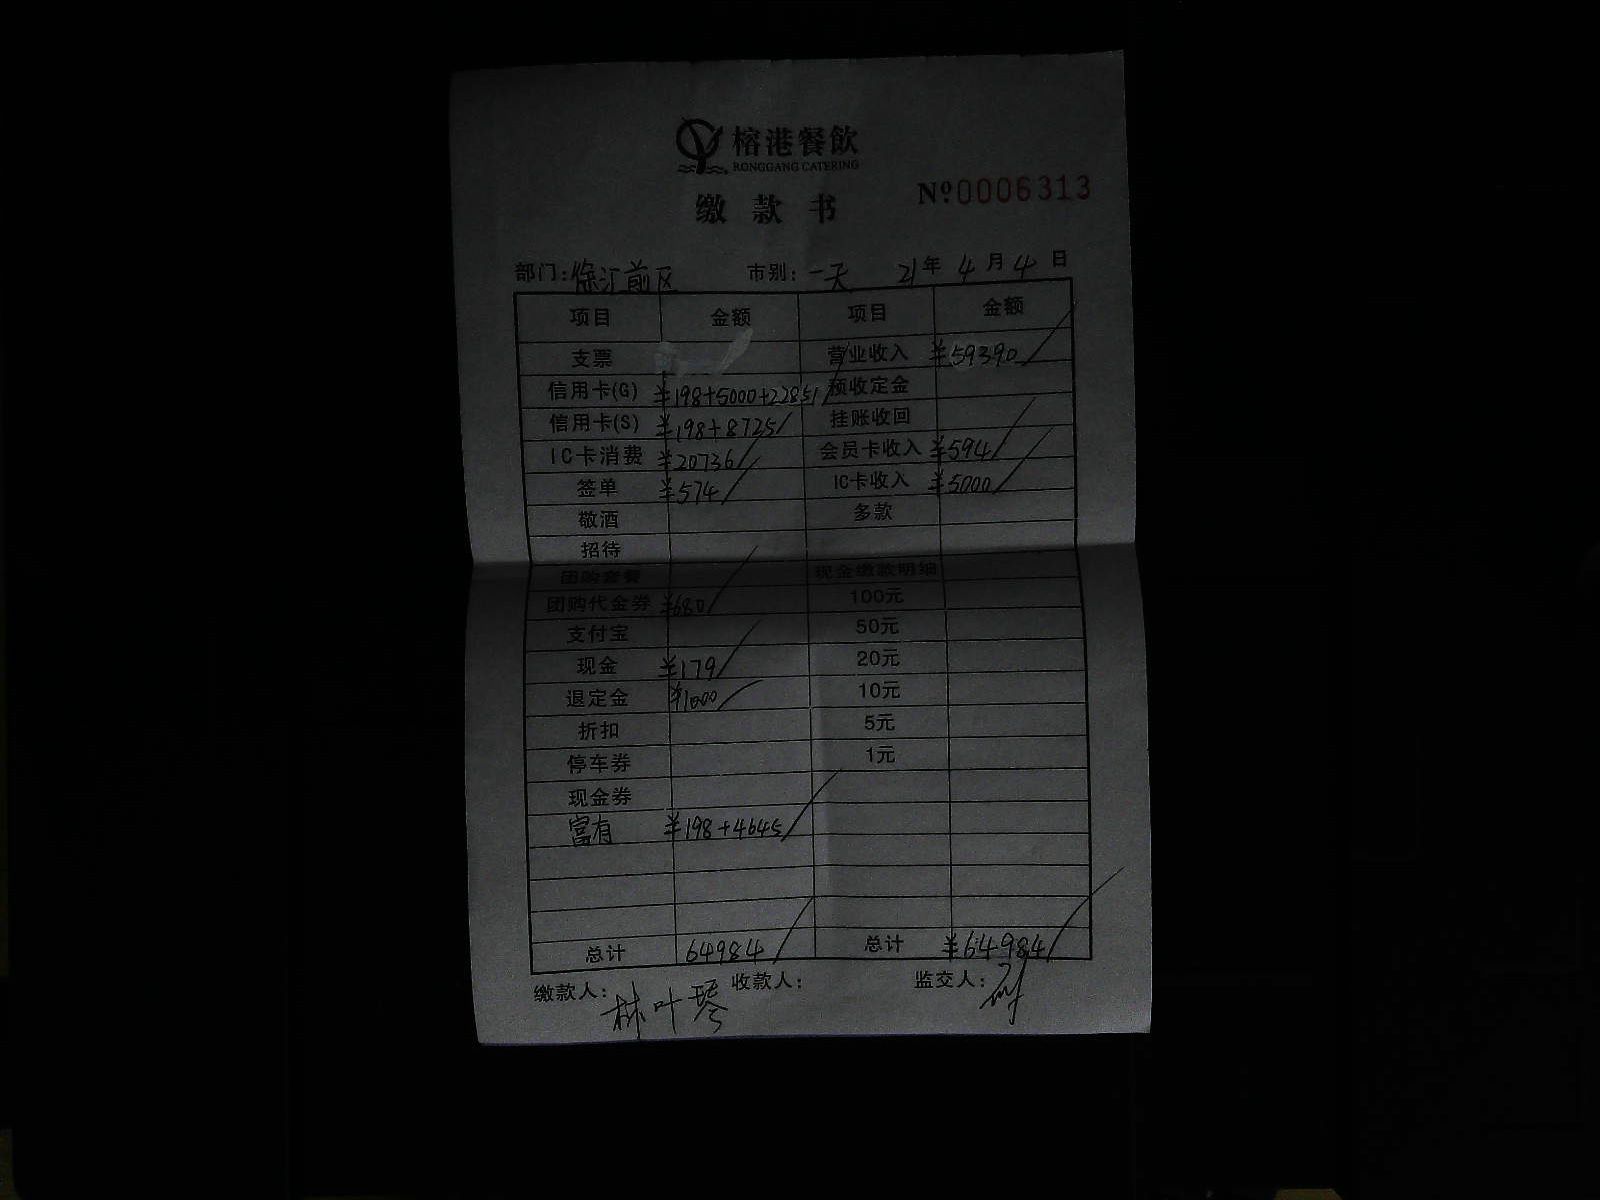 榕港餐飲
RONGGANG CATERING
缴款书 №0006313
部门：徐汇前区 市别：一天 21年4月4日
项目 金额 项目 金额
支票 营业收入 ¥59390
信用卡(G) ¥198+5000+22851 预收定金
信用卡(S) ¥198+8725 挂账收回
IC卡消费 ¥20736 会员卡收入 ¥594
签单 ¥574 IC卡收入 ¥5000
敬酒 多款
招待
团购套餐 现金缴款明细
团购代金券 ¥680 100元
支付宝 50元
现金 ¥179 20元
退定金 ¥1000 10元
折扣 5元
停车券 1元
现金券
富有 ¥198+4645
总计 64984 总计 ¥64984
缴款人：林叶琴 收款人： 监交人：